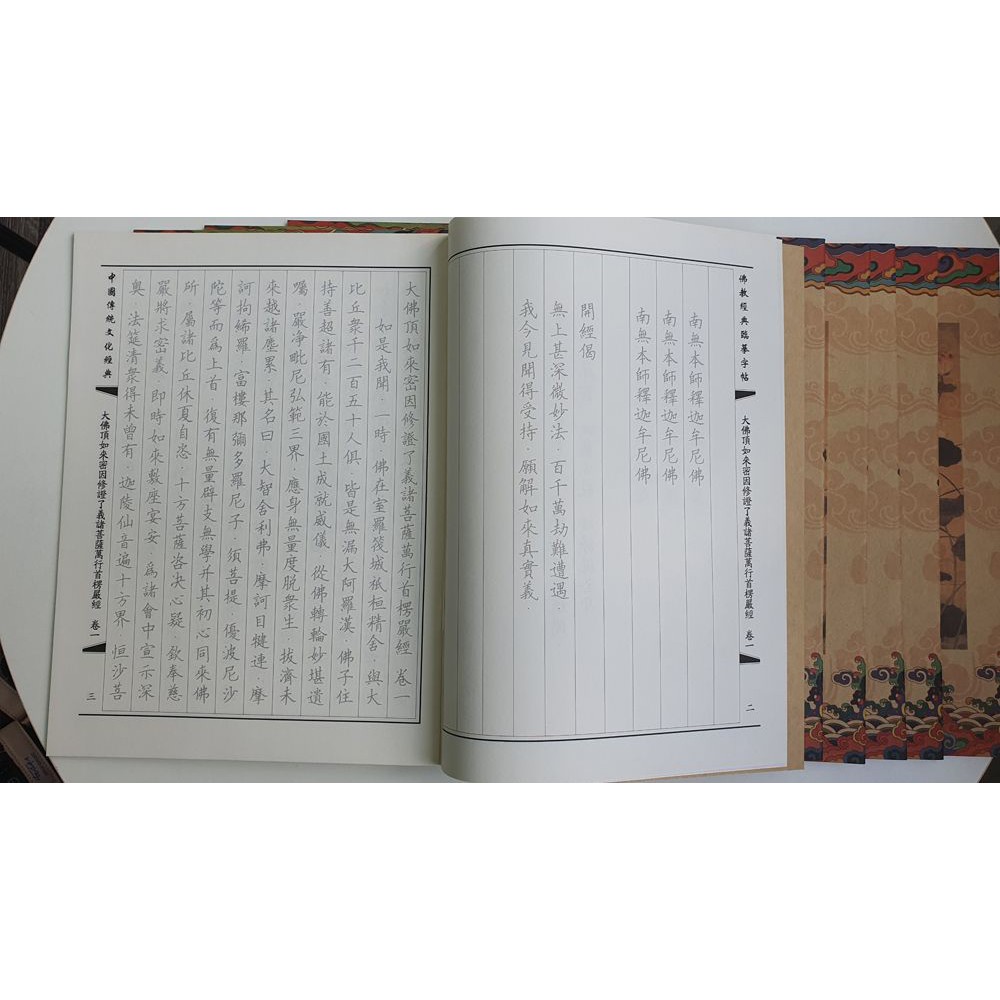 佛教經典臨摹字帖
大佛頂如來密因修證了義諸菩薩萬行首楞嚴經 卷一
二
南無本師釋迦牟尼佛
南無本師釋迦牟尼佛
南無本師釋迦牟尼佛
開經偈
無上甚深微妙法·百千萬劫難遭遇·
我今見聞得受持·願解如來真實義·
大佛頂如來密因修證了義諸菩薩萬行首楞嚴經 卷一
如是我聞·一時·佛在室羅筏城祇桓精舍·與大
比丘衆千二百五十人俱·皆是無漏大阿羅漢·佛子住
持善超諸有·能於國土成就威儀·從佛轉輪妙堪遺
囑·嚴淨毗尼弘範三界·應身無量度脫衆生·拔濟未
來越諸塵累·其名曰·大智舍利弗·摩訶目犍連·摩
訶拘絺羅·富樓那彌多羅尼子·須菩提·優波尼沙
陀等而爲上首·復有無量辟支無學并其初心同來佛
所·屬諸比丘休夏自恣·十方菩薩咨決心疑·欽奉慈
嚴將求密義·即時如來敷座宴安·爲諸會中宣示深
奧·法筵清衆得未曾有·迦陵仙音遍十方界·恒沙菩
中國傳統文化經典
大佛頂如來密因修證了義諸菩薩萬行首楞嚴經 卷一
三